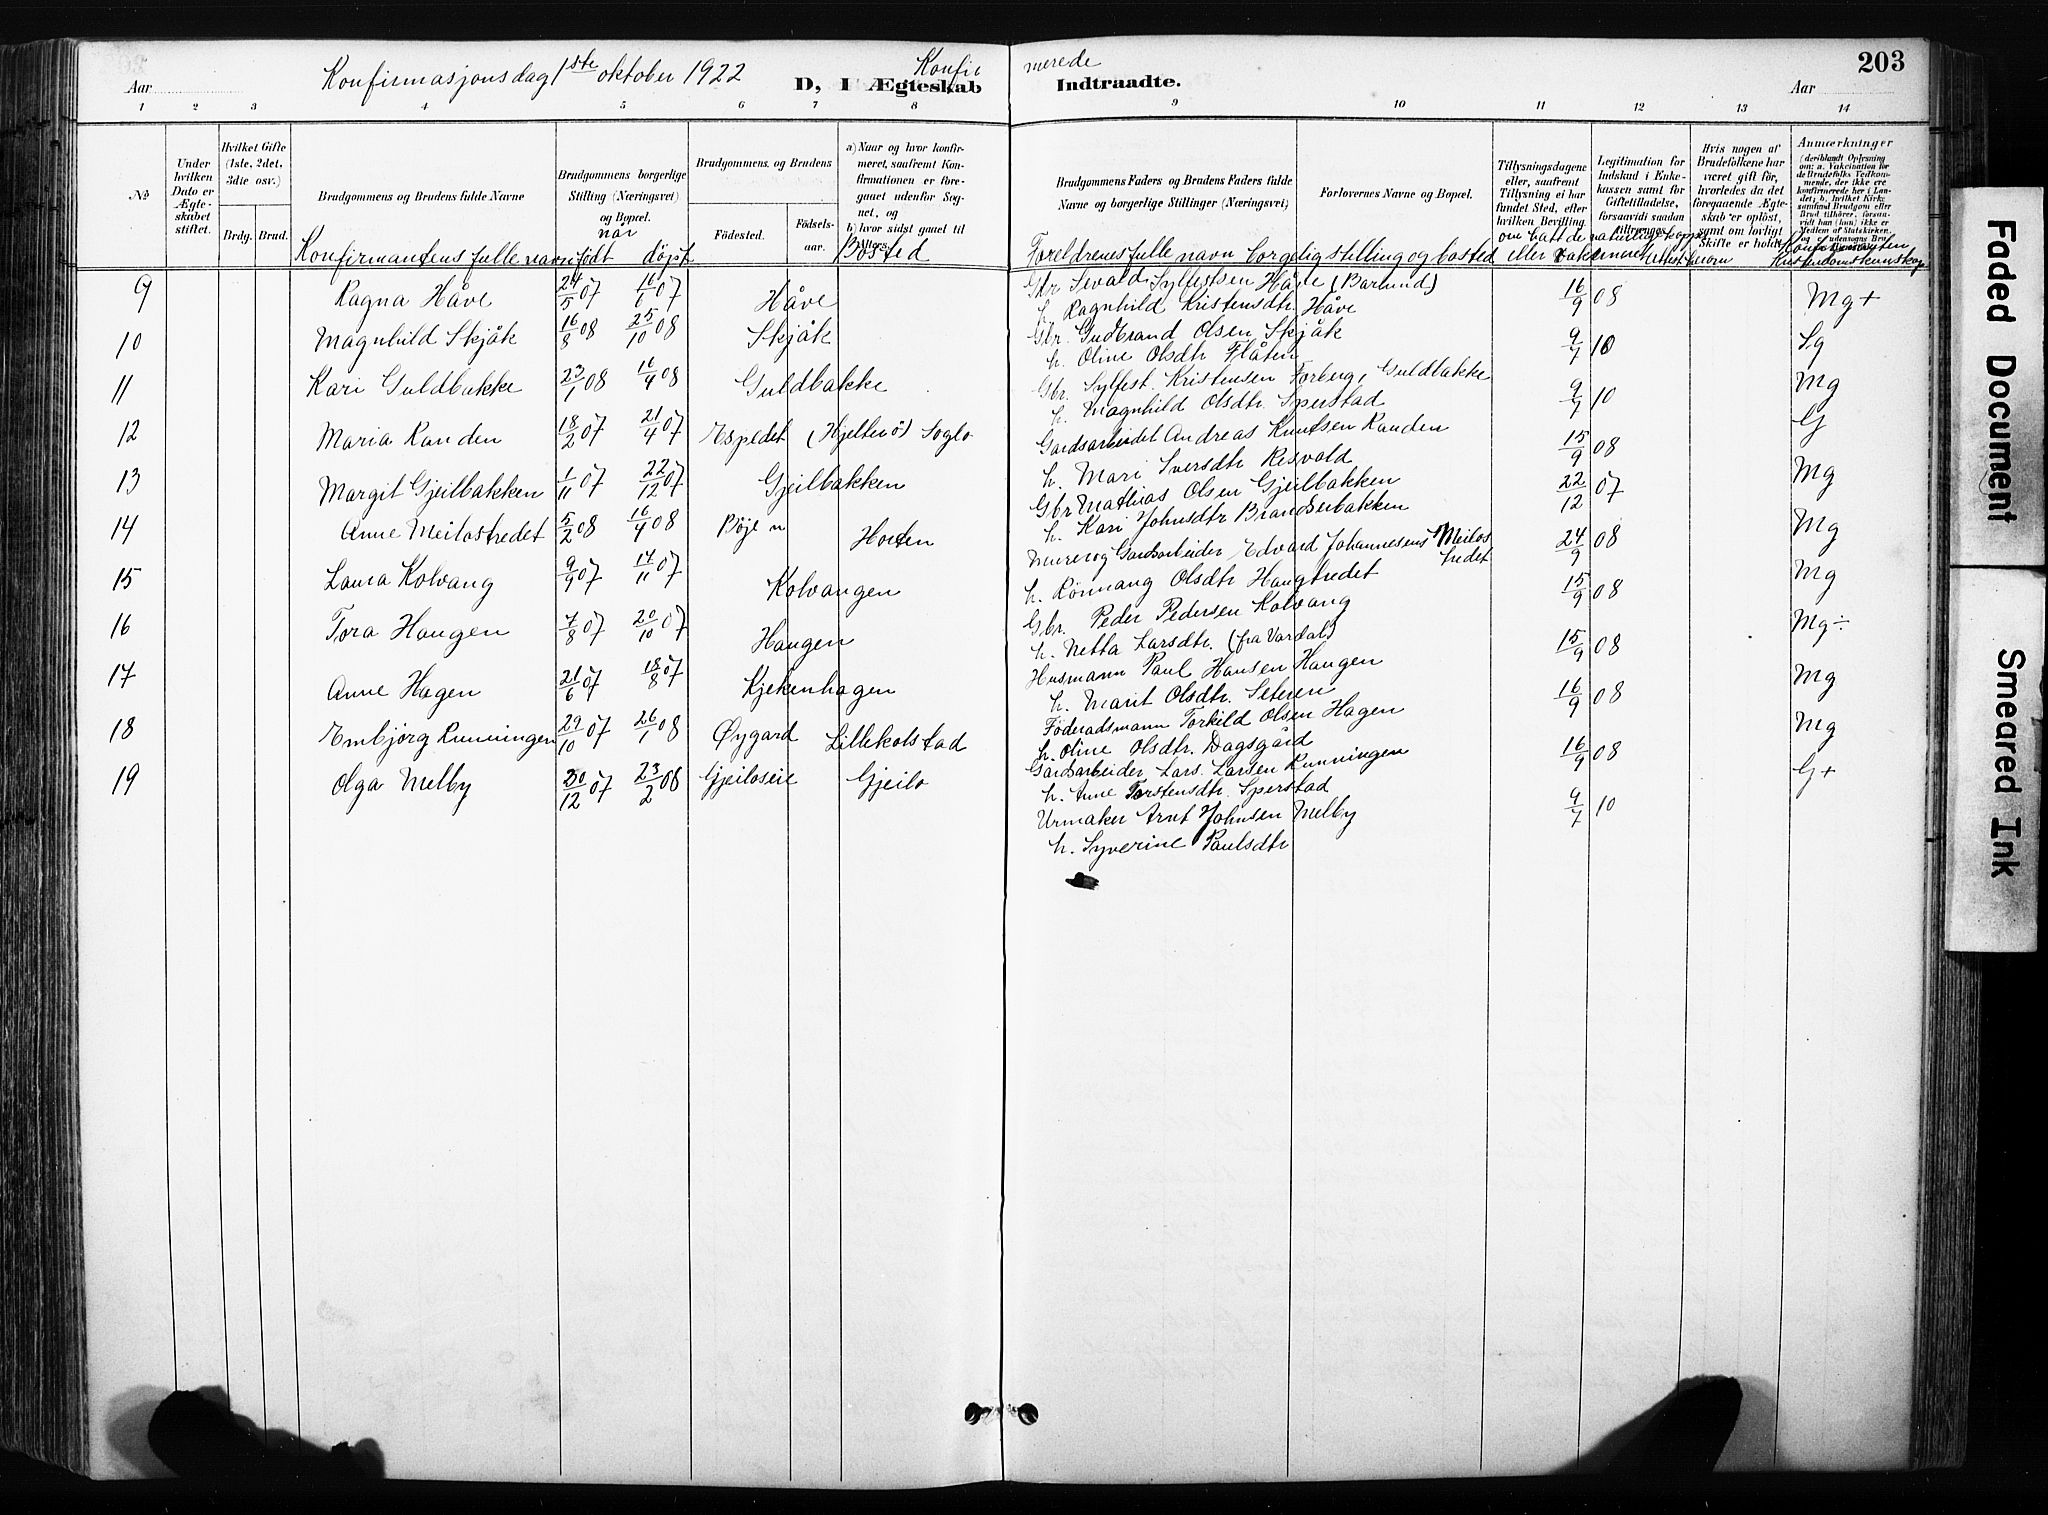 203
Konfirmasjonsdag 1ste oktober 1922 Konfir merede
Aar D, I Ægteskab Indtraadte. Aar
1 2 3 4 5 6 7 8 9 10 11 12 13 14
No.
Under hvilken Dato er Ægteskabet stiftet.
Hvilket Gifte (1ste, 2det, 3die osv.)
Brdg. Brud.
Brudgommens og Brudens fulde Navne
Brudgommens borgerlige Stilling (Næringsvei) og Bopæl.
Brudgommens og Brudens
Fødested. Fødselsaar.
a) Naar og hvor konfirmeret, saafremt Konfirmationen er foregaaet udenfor Sognet, og
b) hvor sidst gaaet til Alters.
Brudgommens Faders og Brudens Faders fulde Navne og borgerlige Stillinger (Næringsvei)
Forlovernes Navne og Bopæl.
Tillysningsdagene eller, saafremt Tillysning ei har fundet Sted, efter hvilken Bevilling
Legitimation for Indskud i Enkekassen samt for Giftetilladelse, forsaavidt saadan tiltrænges.
Hvis nogen af Brudefolkene har været gift før, hvorledes da det foregaaende Ægteskab er opløst, samt om lovligt Skifte er holdt.
Anmærkninger
Konfirmantens fulle navn født når døpt Bosted Foreldrenes fulle navn borgelig stilling og bosted om hatt de naturlige kopper eller vaksinert Attest herom Konfirmanten Kristendomskunskap
9 Ragna Håve 24/5 07 16/6 07 Håve Gbr. Sevald Sylfestsen Håve (Barlund) 16/9 08 Mg+
h. Ragnhild Kristensdtr. Håve
10 Magnhild Skjåk 16/8 08 25/10 08 Skjåk Gbr. Gudbrand Olsen Skjåk 9/7 10 Sg
h. Oline Olsdtr Flåten
11 Kari Guldbakke 23/1 08 16/4 08 Guldbakke Gbr. Sylfest Kristensen Forberg, Guldbakke 9/7 10 Mg
h. Magnhild Olsdtr. Sperstad
12 Maria Randen 18/2 07 21/4 07 Espedet (Hjeltnø) Soglo Gardsarbeidet Andreas Knutsen Randen 15/9 08 G
h. Mari Iversdtr Risvold
13 Margit Gjeilbakken 1/11 07 22/12 07 Gjeilbakken Gbr Mathias Olsen Gjeilbakken 22/12 07 Mg
h. Kari Johnsdtr Brandserbakken
14 Anne Meilostredet 5/2 08 16/4 08 Bøje n Horten Murer og Gardsarbeider Edvard Johannesens Meilostredet 24/9 08 Mg
h. Rönnang Olsdtr Haugtredet
15 Laura Kolvang 9/9 07 17/11 07 Kolvangen Gbr. Peder Pedersen Kolvang 15/9 08 Mg
h. Netta Larsdtr. (fra Vardal)
16 Tora Haugen 7/8 07 20/10 07 Haugen Husmann Paul Hansen Haugen 15/9 08 Mg÷
h. Marit Olsdtr. Seteren
17 Anne Hagen 21/6 07 18/8 07 Kjekenhagen Föderadsmann Torkild Olsen Hagen 16/9 08 Mg
h. Oline Olsdtr. Dagsgård
18 Embjørg Runningen 29/10 07 26/1 08 Øygard Lillekolstad Gardsarbeider Lars Larsen Runningen 16/9 08 Mg
h. Anne Torstensdtr. Sperstad
19 Olga Melby 30/12 07 23/2 08 Gjeiloseie Gjeilo Urmaker Arnt Johnsen Melby 9/7 10 G+
h. Syverine Paulsdtr
Faded Document
Smeared Ink